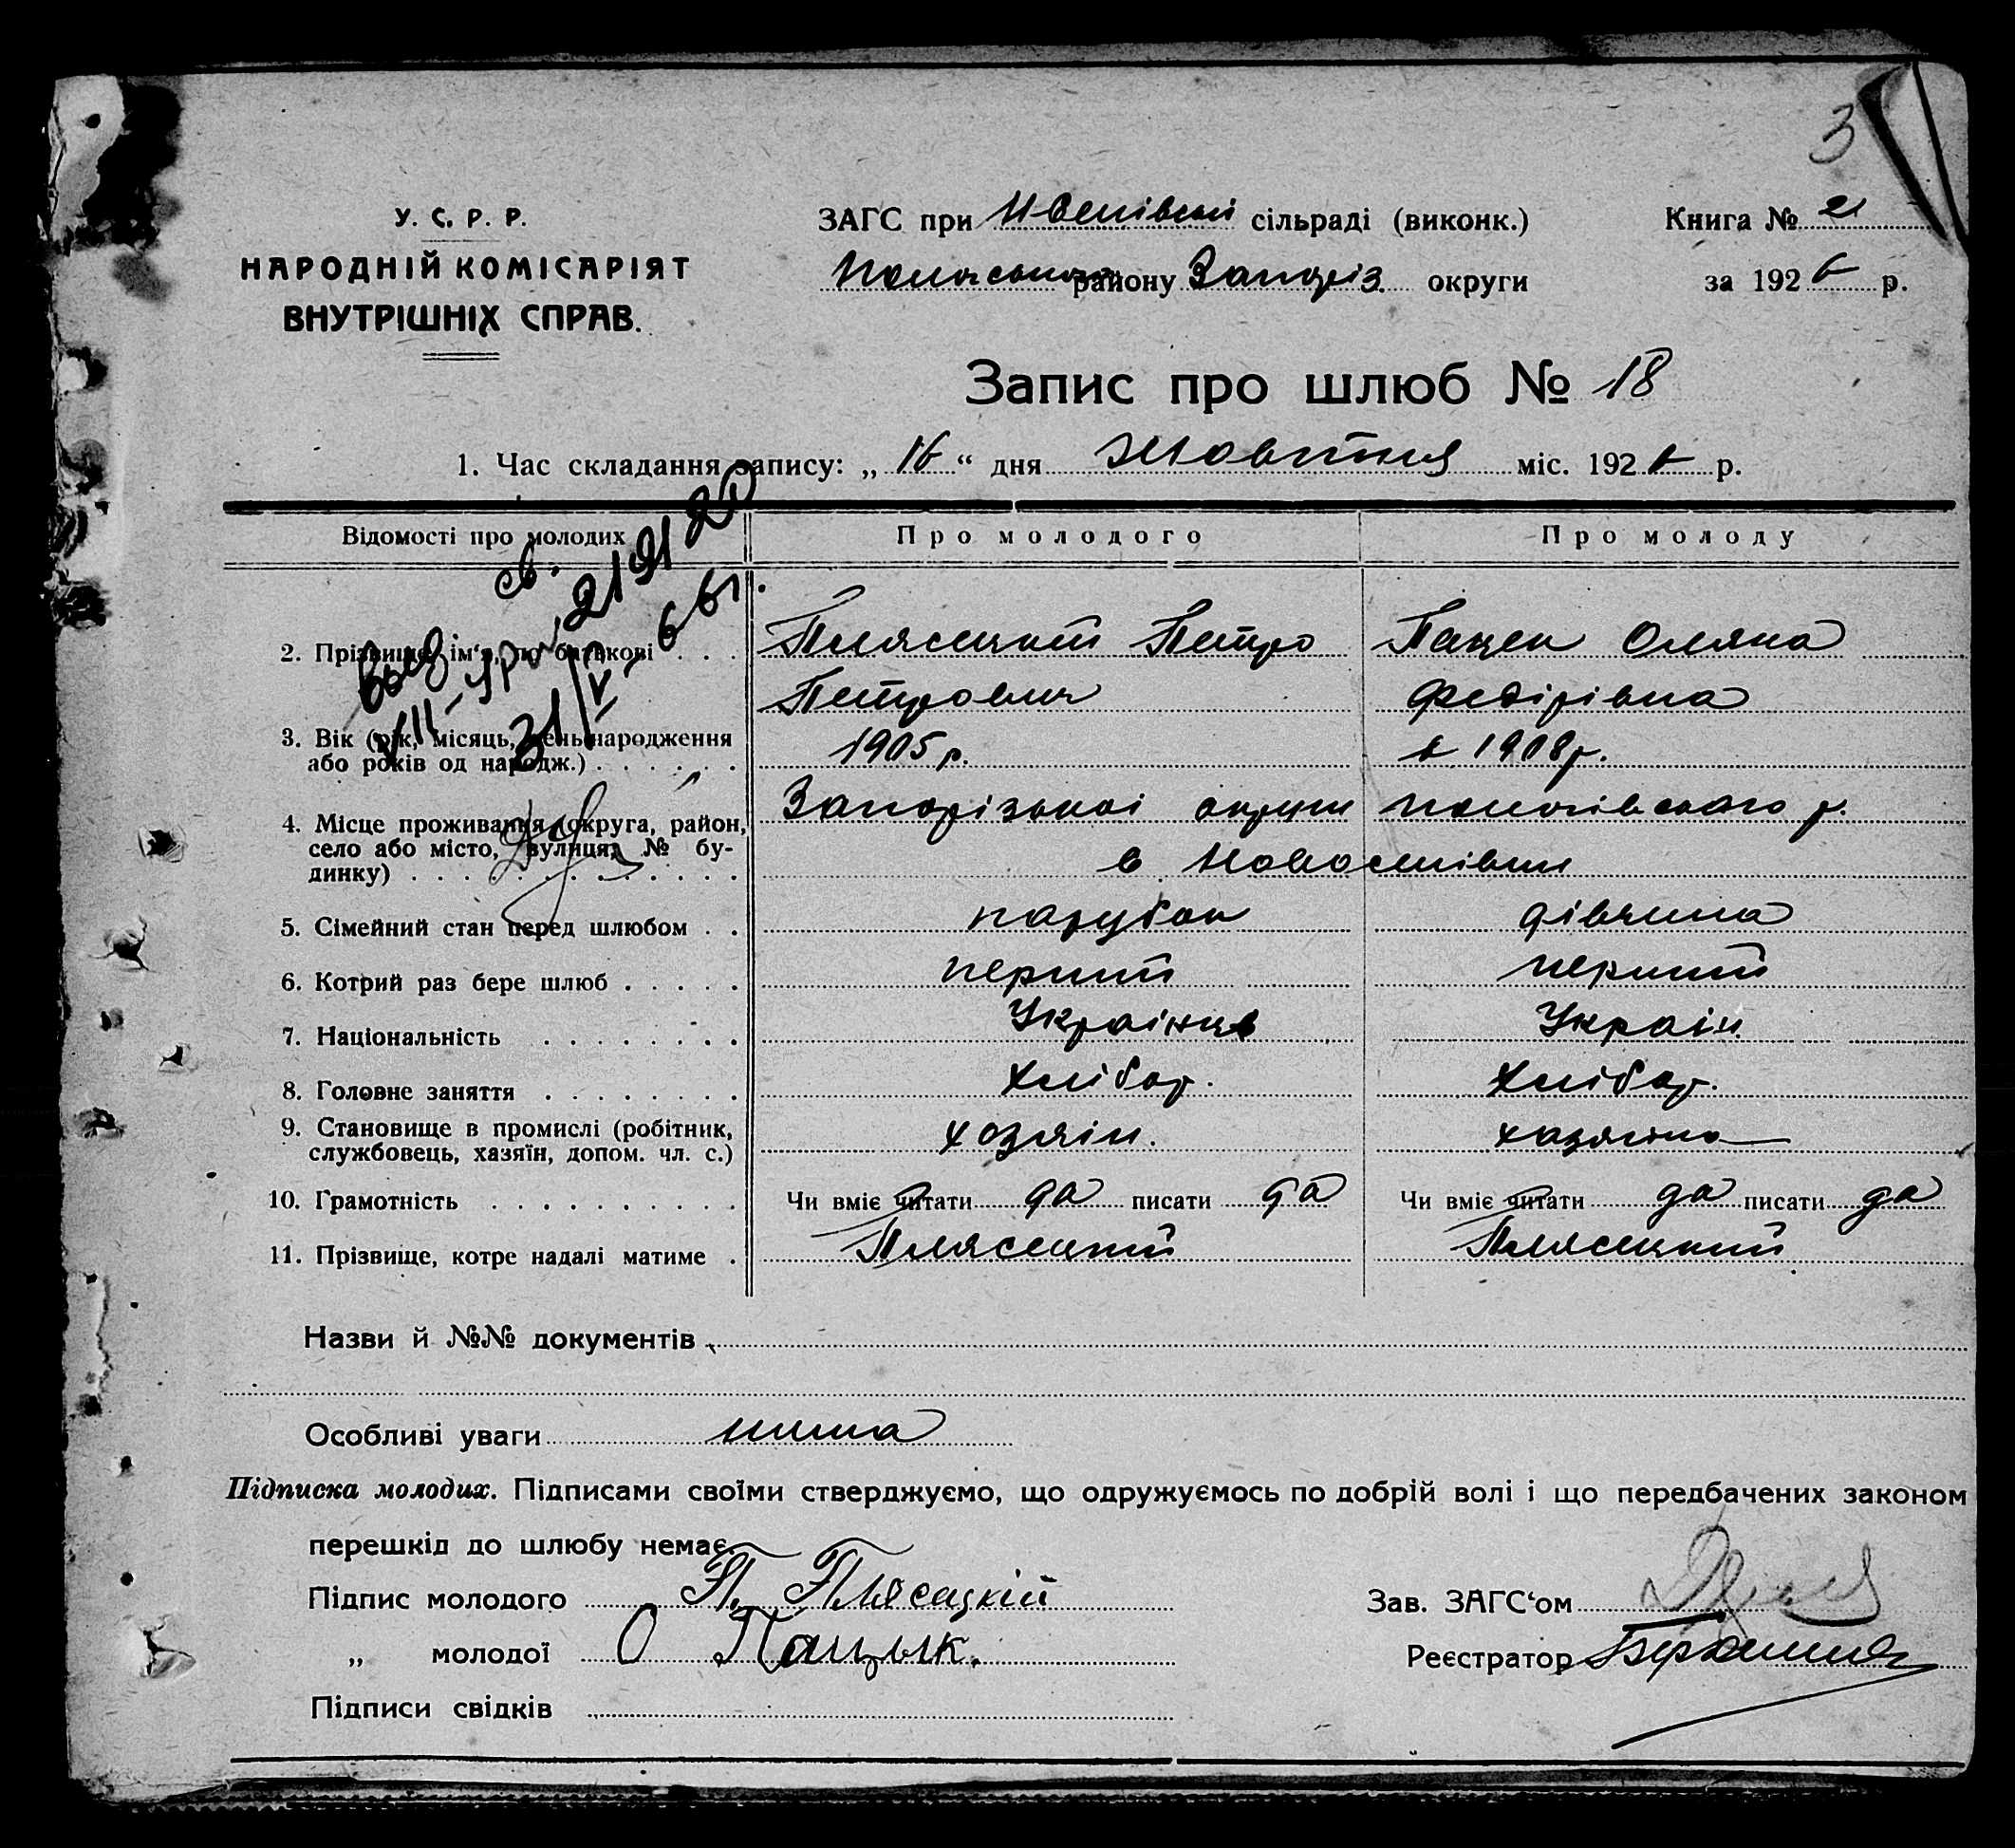 3
У. С. Р. Р.
НАРОДНІЙ КОМІСАРІЯТ
ВНУТРІШНІХ СПРАВ.
ЗАГС при сільраді (виконк.)
району Запоріз округи
Книга №
за 1926 р.
Запис про шлюб № 18
1. Час складання запису: „ 16 “ дня Жовтня міс. 1926 р.
Відомості про молодих
Про молодого
Про молоду
св.
2. Прізвище, ім'я, по батькові . . .
Плясецкий Петро
Пацек Оляна
Петрович
Федірівна
3. Вік (рік, місяць, день народження
або років од народж.) . . . . . .
1905 р.
1908 р.
4. Місце проживання (округа, район,
село або місто, вулиця, № бу-
динку) . . . . . . . . . . . . .
Запорізькоі округи пологівського р.
в Новоселівки
5. Сімейний стан перед шлюбом . .
парубок
дівчина
6. Котрий раз бере шлюб . . . . .
перший
перший
7. Національність . . . . . . . .
Украінць
Украін.
8. Головне заняття . . . . . . . .
хлібор.
хлібор.
9. Становище в промислі (робітник,
службовець, хазяїн, допом. чл. с.)
хозяін.
хазяіна
10. Грамотність . . . . . . . . . .
Чи вміє читати да писати да
Чи вміє читати да писати да
11. Прізвище, котре надалі матиме .
Плясецкий
Плясецкий
Назви й №№ документів
Особливі уваги нима
Підписка молодих. Підписами своїми стверджуємо, що одружуємось по добрій волі і що передбачених законом
перешкід до шлюбу немає.
Підпис молодого П. Плясецкій
Зав. ЗАГС'ом
„ молодої О Пацык.
Реєстратор
Підписи свідків